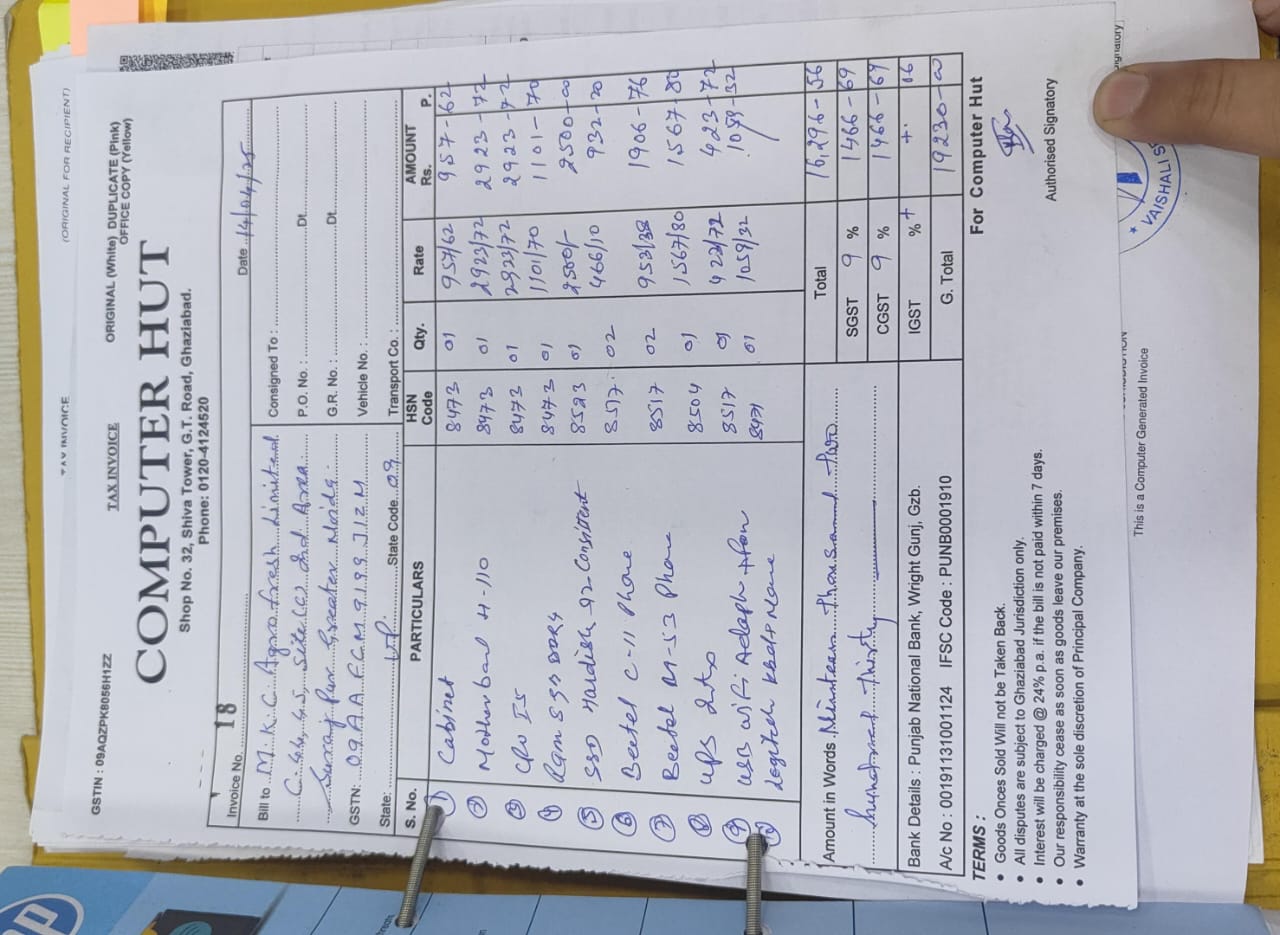 (ORIGINAL FOR RECIPIENT)
TAX INVOICE
GSTIN : 09AQZPK8056H1ZZ
TAX INVOICE
ORIGINAL (White) DUPLICATE (Pink)
OFFICE COPY (Yellow)
COMPUTER HUT
Shop No. 32, Shiva Tower, G.T. Road, Ghaziabad.
Phone: 0120-4124520
Invoice No. 18
Date 14/04/25
Bill to M.K.C Agrofresh Limited
C-44,45, Site (C) Ind Area
Suraj Pur Greater Noida
GSTN: 09AAFCM9199J1ZM
State: UP State Code 09
Consigned To :
P.O. No. : Dt.
G.R. No. : Dt.
Vehicle No. :
Transport Co. :
S. No. PARTICULARS HSN Code Qty. Rate AMOUNT Rs. P.
1 Cabinet 8473 01 957/62 957-62
2 Motherbad H-110 8473 01 2923/72 2923-72
3 CPU I5 8473 01 2923/72 2923-72
4 8473 01 1101/70 1101-70
5 SSD Hardisk Consistent 8523 01 2500/- 2500-00
6 Beetel C-11 Phone 8517 02 466/10 932-20
7 Beetal M-53 Phone 8517 02 953/38 1906-76
8 UPS 8504 01 1567/80 1567-80
9 USB Wifi 8517 01 423/72 423-72
10 8471 01 1059/32 1059-32
Total 16,296-56
SGST 9 % 1466-69
CGST 9 % 1466-69
IGST % + + 06
G. Total 19230-00
Amount in Words Ninteen Thousand two
hundred thirty
Bank Details : Punjab National Bank, Wright Gunj, Gzb.
A/c No : 00191131001124 IFSC Code : PUNB0001910
TERMS :
• Goods Onces Sold Will not be Taken Back.
• All disputes are subject to Ghaziabad Jurisdiction only.
• Interest will be charged @ 24% p.a. if the bill is not paid within 7 days.
• Our responsibility cease as soon as goods leave our premises.
• Warranty at the sole discretion of Principal Company.
For Computer Hut
Authorised Signatory
This is a Computer Generated Invoice
VAISHALI
hp